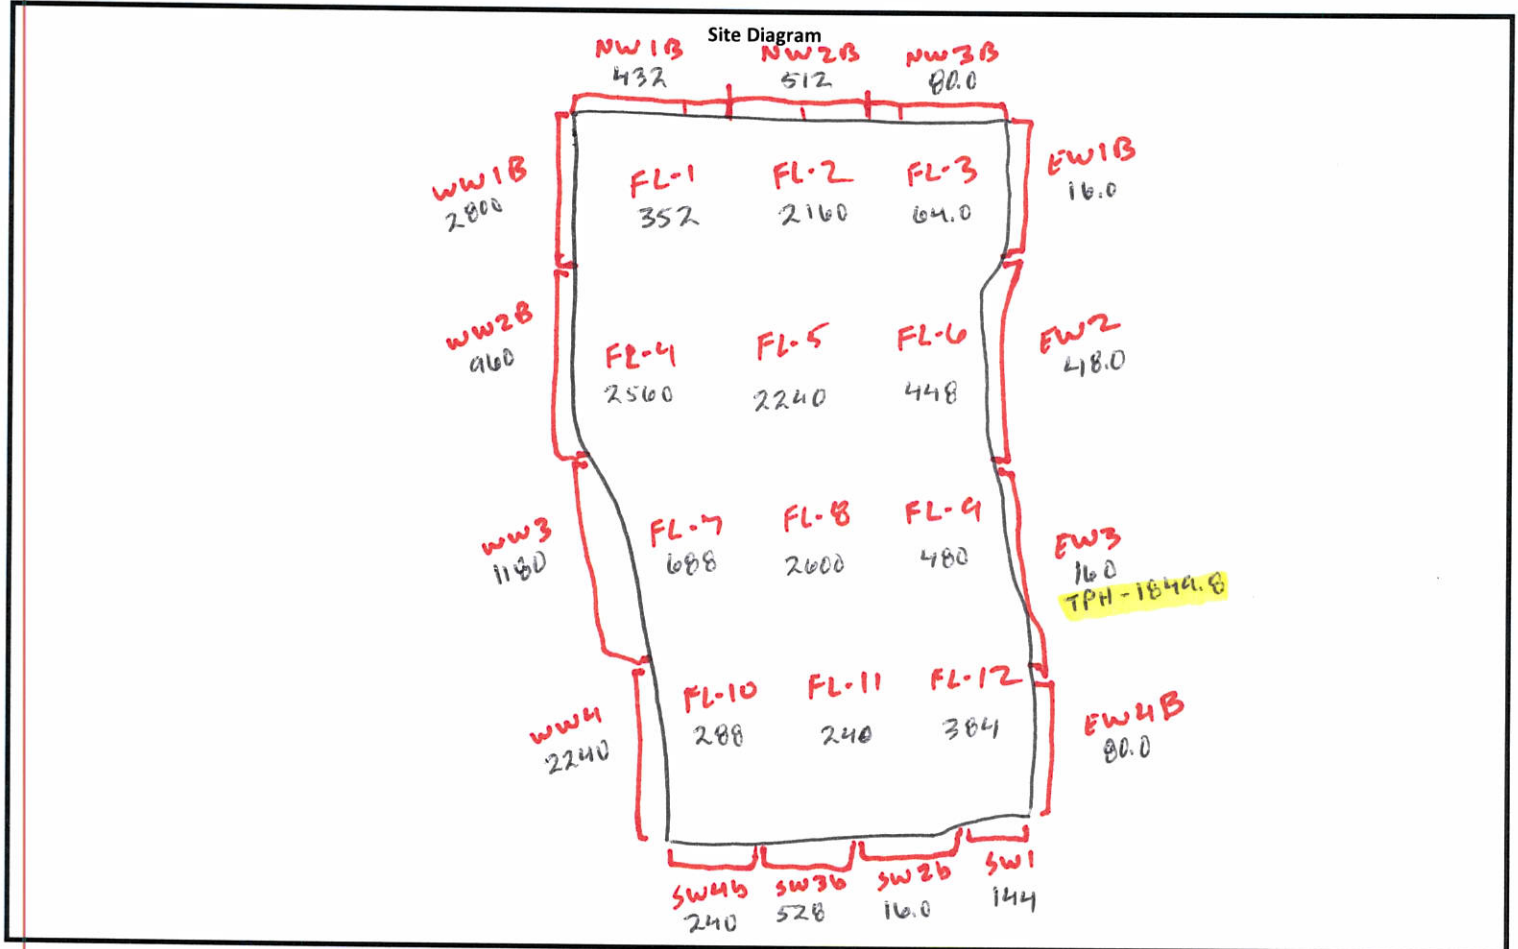 Site Diagram
NW1B
432
NW2B
512
NW3B
80.0
WW1B
2800
FL-1
352
FL-2
2160
FL-3
64.0
EW1B
16.0
WW2B
960
FL-4
2560
FL-5
2240
FL-6
448
EW2
48.0
WW3
1180
FL-7
688
FL-8
2600
FL-9
480
EW3
160
TPH-1849.8
WW4
2240
FL-10
288
FL-11
240
FL-12
384
EW4B
80.0
SW4b
240
SW3b
528
SW2b
16.0
SW1
144